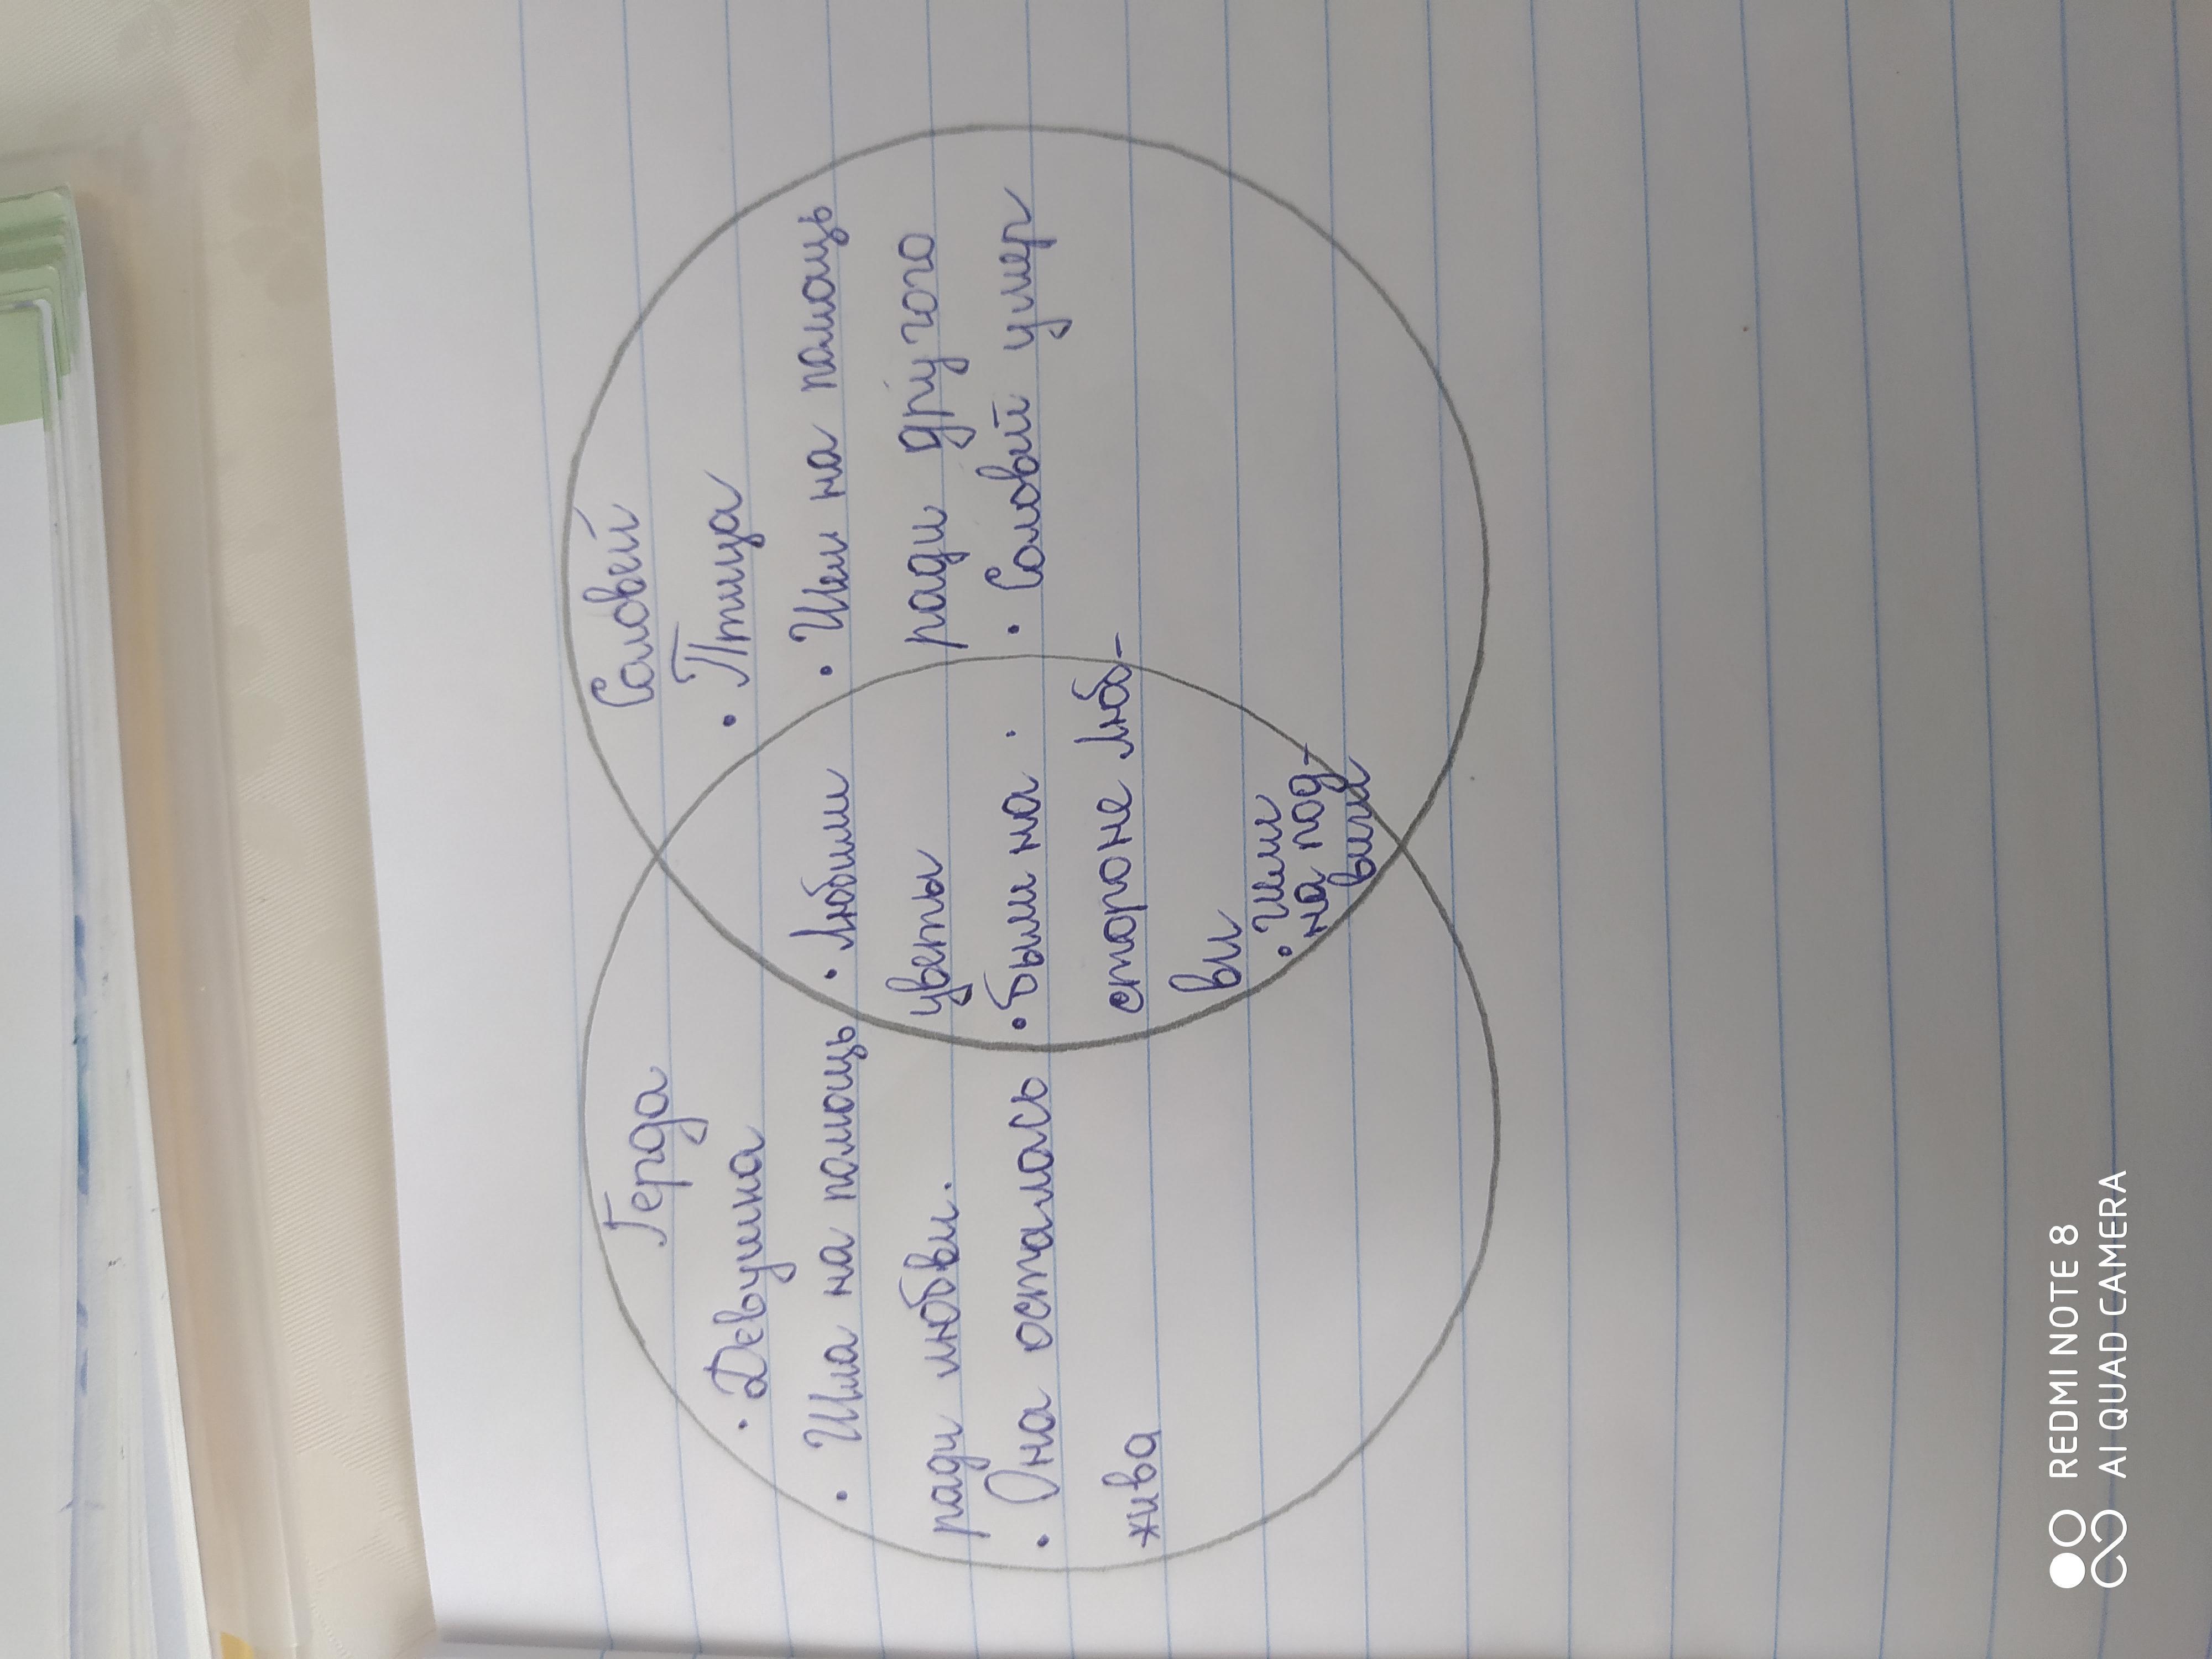 Герда
• Девушка
• Шла на помощь
ради любви.
• Она осталась
жива
• Любили
цветы
• были на
стороне люб-
ви
• Шли
на под-
виги
Соловей
• Птица
• Шли на помощь
ради другого
• Соловей умер
REDMI NOTE 8
AI QUAD CAMERA